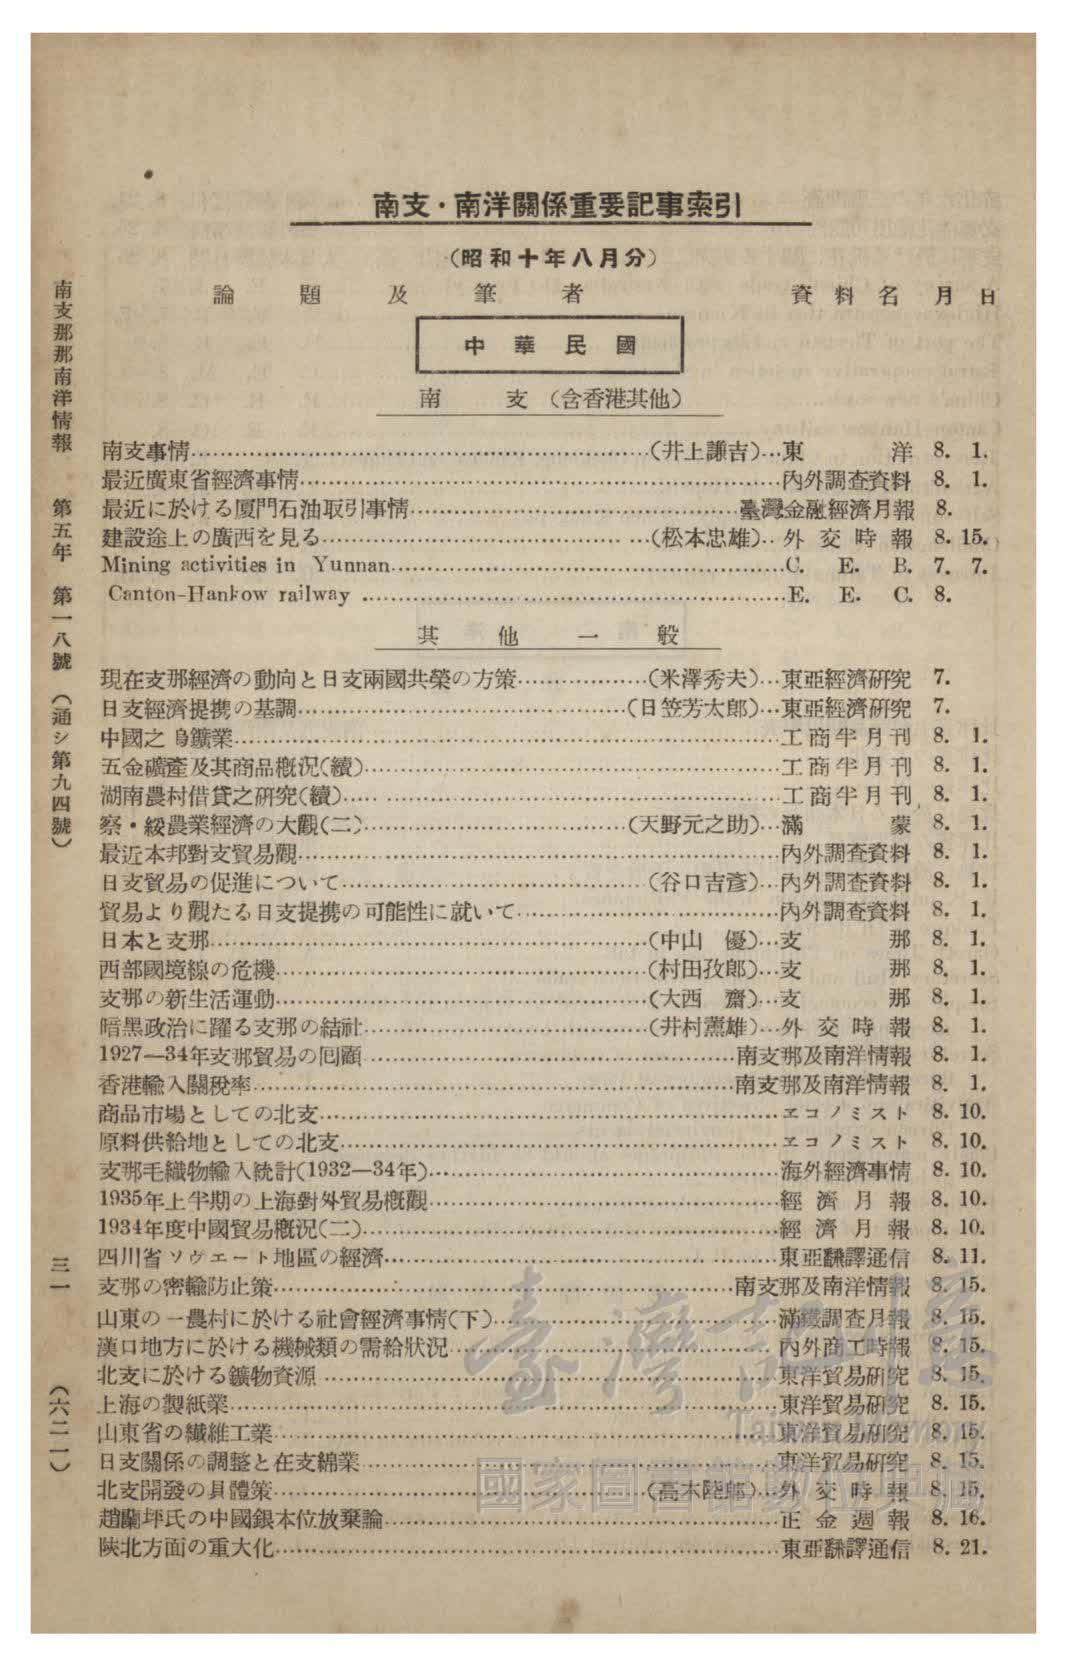 南支・南洋關係重要記事索引
(昭和十年八月分)
論題及筆者 資料名 月 日
中華民國
南支(含香港其他)
南支事情……(井上謙吉)…東洋 8. 1.
最近廣東省經濟事情……內外調查資料 8. 1.
最近に於ける厦門石油取引事情……臺灣金融經濟月報 8.
建設途上の廣西を見る……(松本忠雄)‥外交時報 8. 15.
Mining activities in Yunnan……C. E. B. 7. 7.
Canton-Hankow railway……E. E. C. 8.
其他一般
現在支那經濟の動向と日支兩國共榮の方策……(米澤秀夫)…東亞經濟研究 7.
日支經濟提携の基調……(日笠芳太郎)…東亞經濟研究 7.
中國之鎢鑛業……工商半月刊 8. 1.
五金礦產及其商品概況(續)……工商半月刊 8. 1.
湖南農村借貸之研究(續)……工商半月刊 8. 1.
察・綏農業經濟の大觀(二)……(天野元之助)…滿蒙 8. 1.
最近本邦對支貿易觀……內外調查資料 8. 1.
日支貿易の促進について……(谷口吉彥)…內外調查資料 8. 1.
貿易より觀たる日支提携の可能性に就いて……內外調查資料 8. 1.
日本と支那……(中山 優)…支那 8. 1.
西部國境線の危機……(村田孜郎)…支那 8. 1.
支那の新生活運動……(大西 齋)…支那 8. 1.
暗黑政治に躍る支那の結社……(井村薰雄)…外交時報 8. 1.
1927—34年支那貿易の囘顧……南支那及南洋情報 8. 1.
香港輸入關稅率……南支那及南洋情報 8. 1.
商品市場としての北支……ヱコノミスト 8. 10.
原料供給地としての北支……ヱコノミスト 8. 10.
支那毛織物輸入統計(1932—34年)……海外經濟事情 8. 10.
1935年上半期の上海對外貿易概觀……經濟月報 8. 10.
1934年度中國貿易概況(二)……經濟月報 8. 10.
四川省ソヴエート地區の經濟……東亞飜譯通信 8. 11.
支那の密輸防止策……南支那及南洋情報 8. 15.
山東の一農村に於ける社會經濟事情(下)……滿鐵調查月報 8. 15.
漢口地方に於ける機械類の需給狀況……內外商工時報 8. 15.
北支に於ける鑛物資源……東洋貿易研究 8. 15.
上海の製紙業……東洋貿易研究 8. 15.
山東省の纖維工業……東洋貿易研究 8. 15.
日支關係の調整と在支綿業……東洋貿易研究 8. 15.
北支開發の具體策……(高木陸郎)…外交時報 8. 15.
趙蘭坪氏の中國銀本位放棄論……正金週報 8. 16.
陝北方面の重大化……東亞飜譯通信 8. 21.
南支那那南洋情報 第五年 第一八號 (通シ第九四號)
三一
(六二一)
臺灣記憶
Taiwan Memory
國家圖書館數位典藏